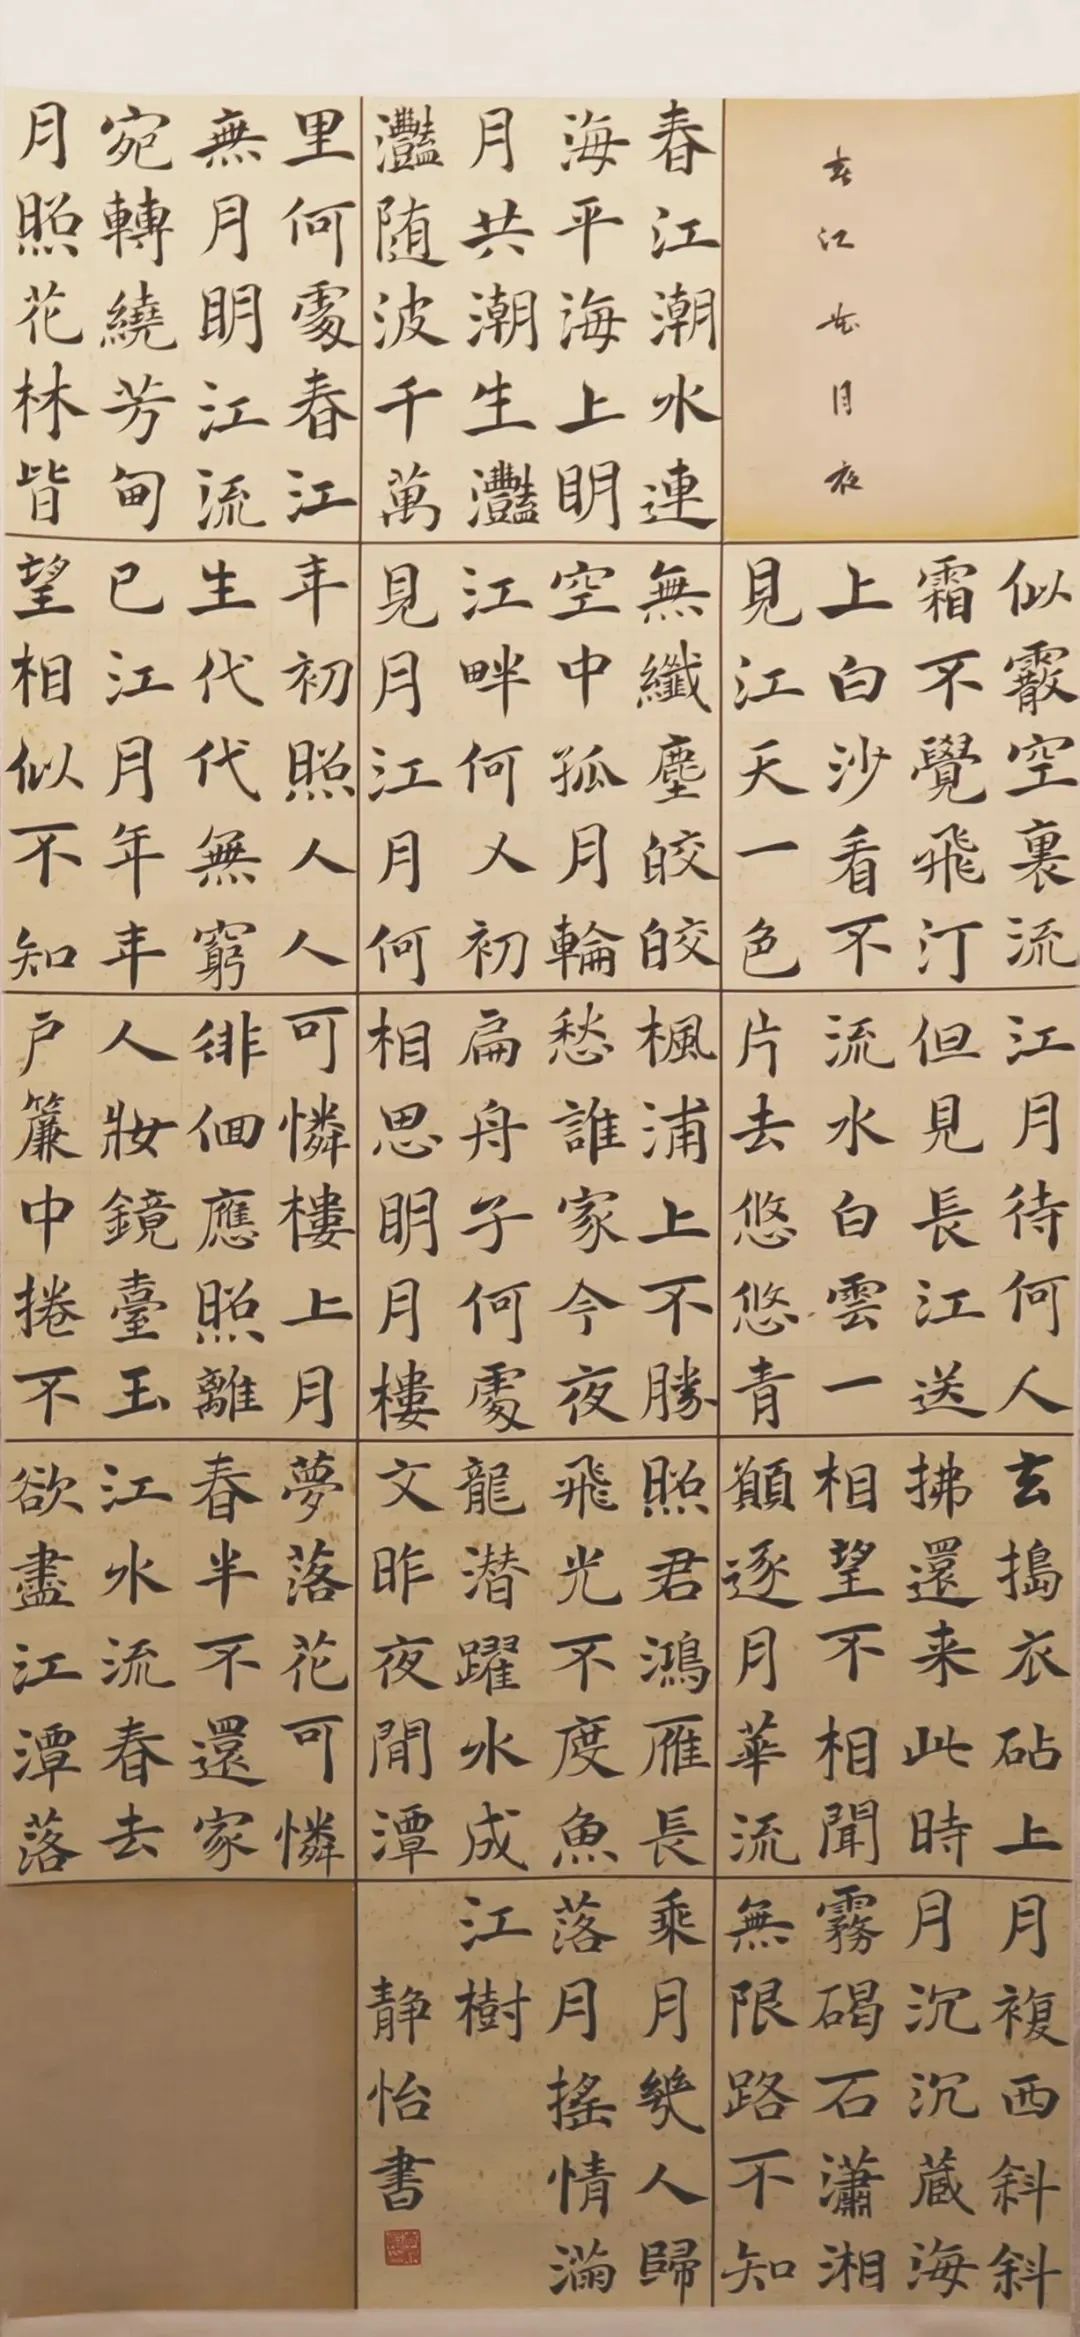 春江花月夜
春江潮水連
海平海上明
月共潮生灩
灩随波千萬
里何處春江
無月明江流
宛轉繞芳甸
月照花林皆
似霰空裏流
霜不覺飛汀
上白沙看不
見江天一色
無纖塵皎皎
空中孤月輪
江畔何人初
見月江月何
年初照人人
生代代無窮
已江月年年
望相似不知
江月待何人
但見長江送
流水白雲一
片去悠悠青
楓浦上不勝
愁誰家今夜
扁舟子何處
相思明月樓
可憐樓上月
徘徊應照離
人妝鏡臺玉
户簾中捲不
去搗衣砧上
拂還来此時
相望不相聞
願逐月華流
照君鴻雁長
飛光不度魚
龍潜躍水成
文昨夜閒潭
夢落花可憐
春半不還家
江水流春去
欲盡江潭落
月複西斜斜
月沉沉蔵海
霧碣石瀟湘
無限路不知
乘月幾人歸
落月搖情滿
江樹
静怡書